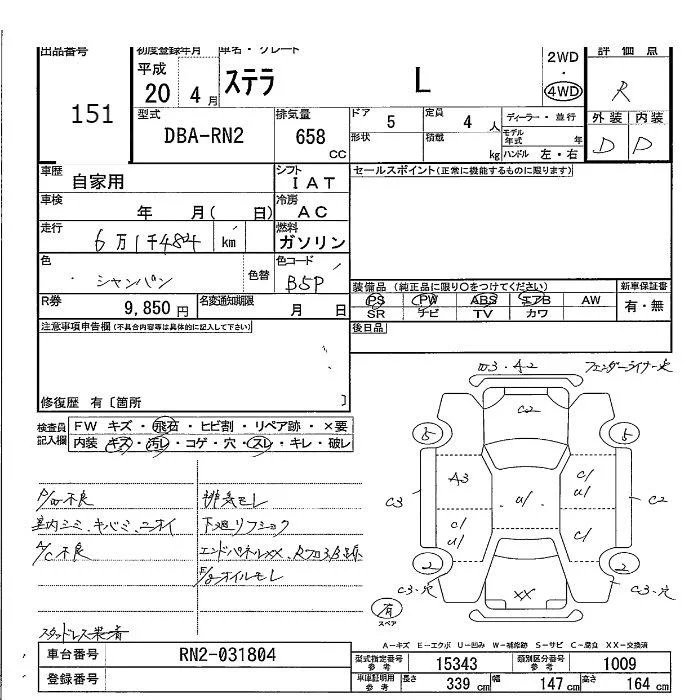 出品番号 初度登録年月 車名・グレード 評価点
151 平成 20 4月 ステラ L 2WD・4WD R
型式 DBA-RN2 排気量 658 CC ドア 5 定員 4 人 ディーラー・並行 外装 内装
形状 積載 kg モデル年式 年 ハンドル 左・右 D D
車歴 自家用 シフト IAT セールスポイント(正常に機能するものに限ります)
車検 年 月( 日) 冷房 AC
走行 6万1千484 km 燃料 ガソリン
色 シャンパン 色替 色コード B5P
装備品 (純正品に限り○をつけてください) 新車保証書
PS PW ABS エアB AW 有・無
SR ナビ TV カワ
R券 9,850円 名変通知期限 月 日
後日品
注意事項申告欄(不具合内容等は具体的に記入して下さい)
修復歴 有〔箇所 〕
検査員記入欄 FW キズ・飛石・ヒビ割・リペア跡・×要
内装 キズ・汚レ・コゲ・穴・スレ・キレ・破レ
フェンダーライナー欠
C2
5 5
A3 C1 U1
C3 U1 C2
C1 U1 C1
2 2
C3・穴 XX C3・穴
P/W不良 排気モレ
室内シミ、キバミ、ニオイ 下廻リフショク
A/C不良 エンドパネルXX、
E/gオイルモレ
有 スペア
スタッドレス装着
A-キズ E-エクボ U-凹み W-補修跡 S-サビ C-腐食 XX-交換済
車台番号 RN2-031804 型式指定番号 参考 15343 類別区分番号 参考 1009
登録番号 車庫証明用 参考 長さ 339 cm 幅 147 cm 高さ 164 cm